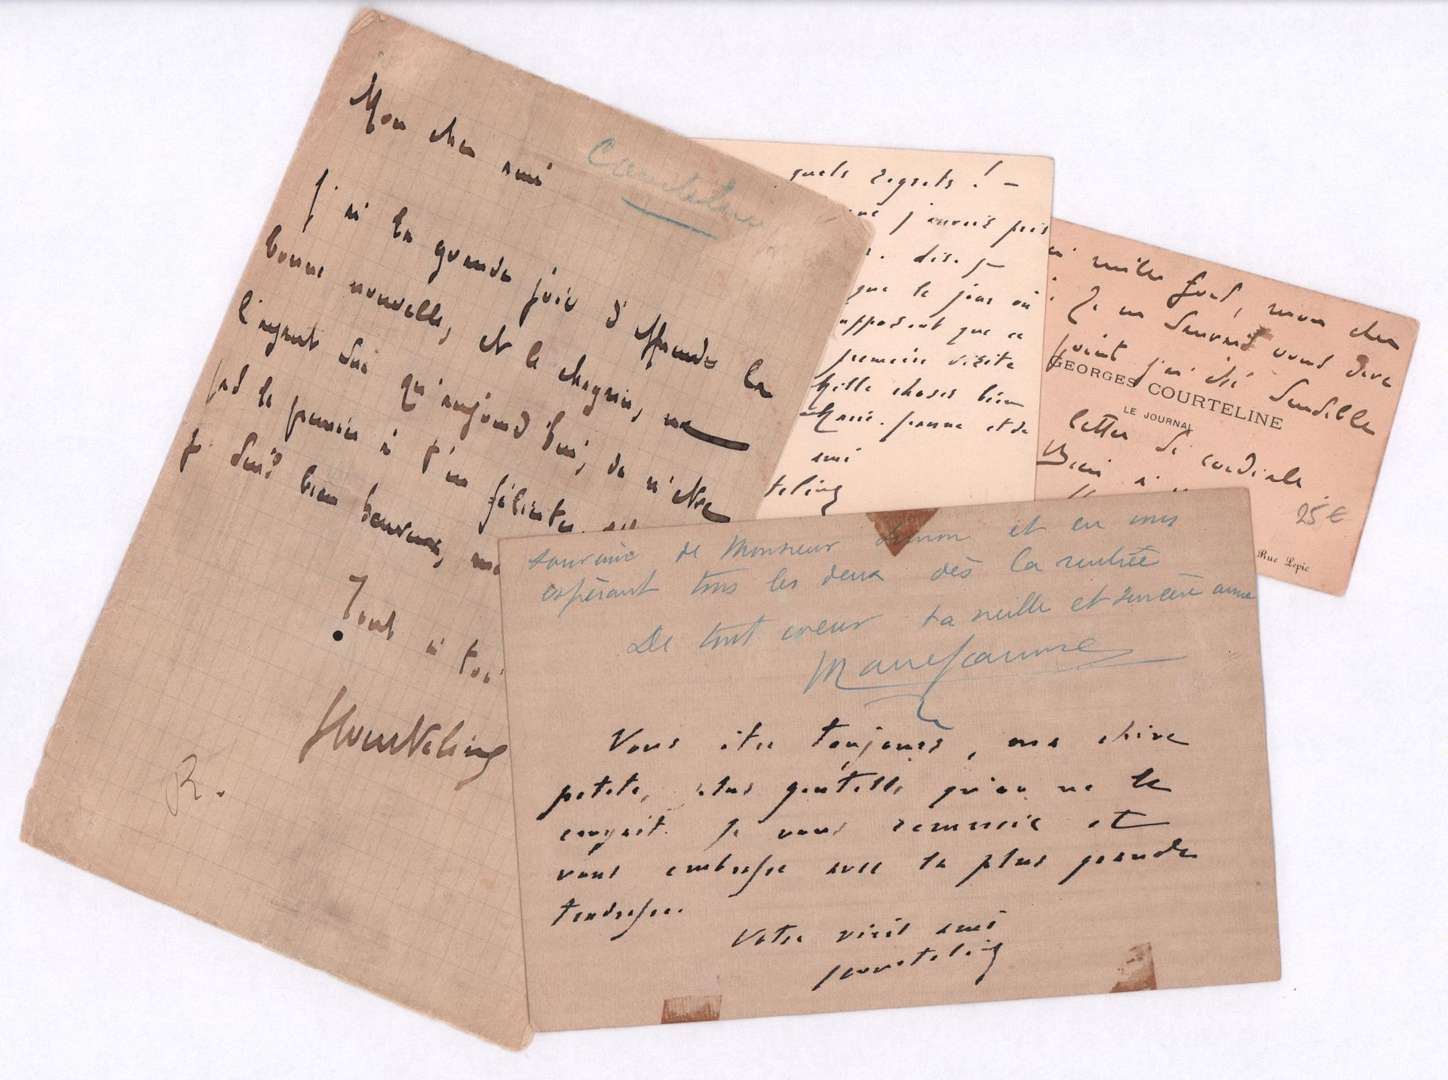 Mon cher ami
Courteline
J'ai la grande joie d'apprendre la
bonne nouvelle, et le chagrin, ne
l'ayant sue qu'aujourd'hui, de n'être
pas le premier à t'en féliciter.
Je suis bien heureux,
Tout à toi
GCourteline
R.
quels regrets ! —
que j'aurais pris
que le jour où
supposant que ce
première visite
Mille choses bien
Marie-Jeanne et de
ami
teline
mille fois, mon cher
Je ne saurais vous dire
point j'ai été sensible
GEORGES COURTELINE
LE JOURNAL
lettre si cordiale
Bien à
25 €
Rue Lepic
souvenir de Monsieur et en vous
espérant tous les deux dès la rentrée
De tout coeur ta vieille et sincère amie
MarieJeanne
Vous êtes toujours, ma chère
petite, plus gentille qu'on ne le
croyait. Je vous remercie et
vous embrasse avec la plus grande
tendresse.
Votre vieil ami
GCourteline